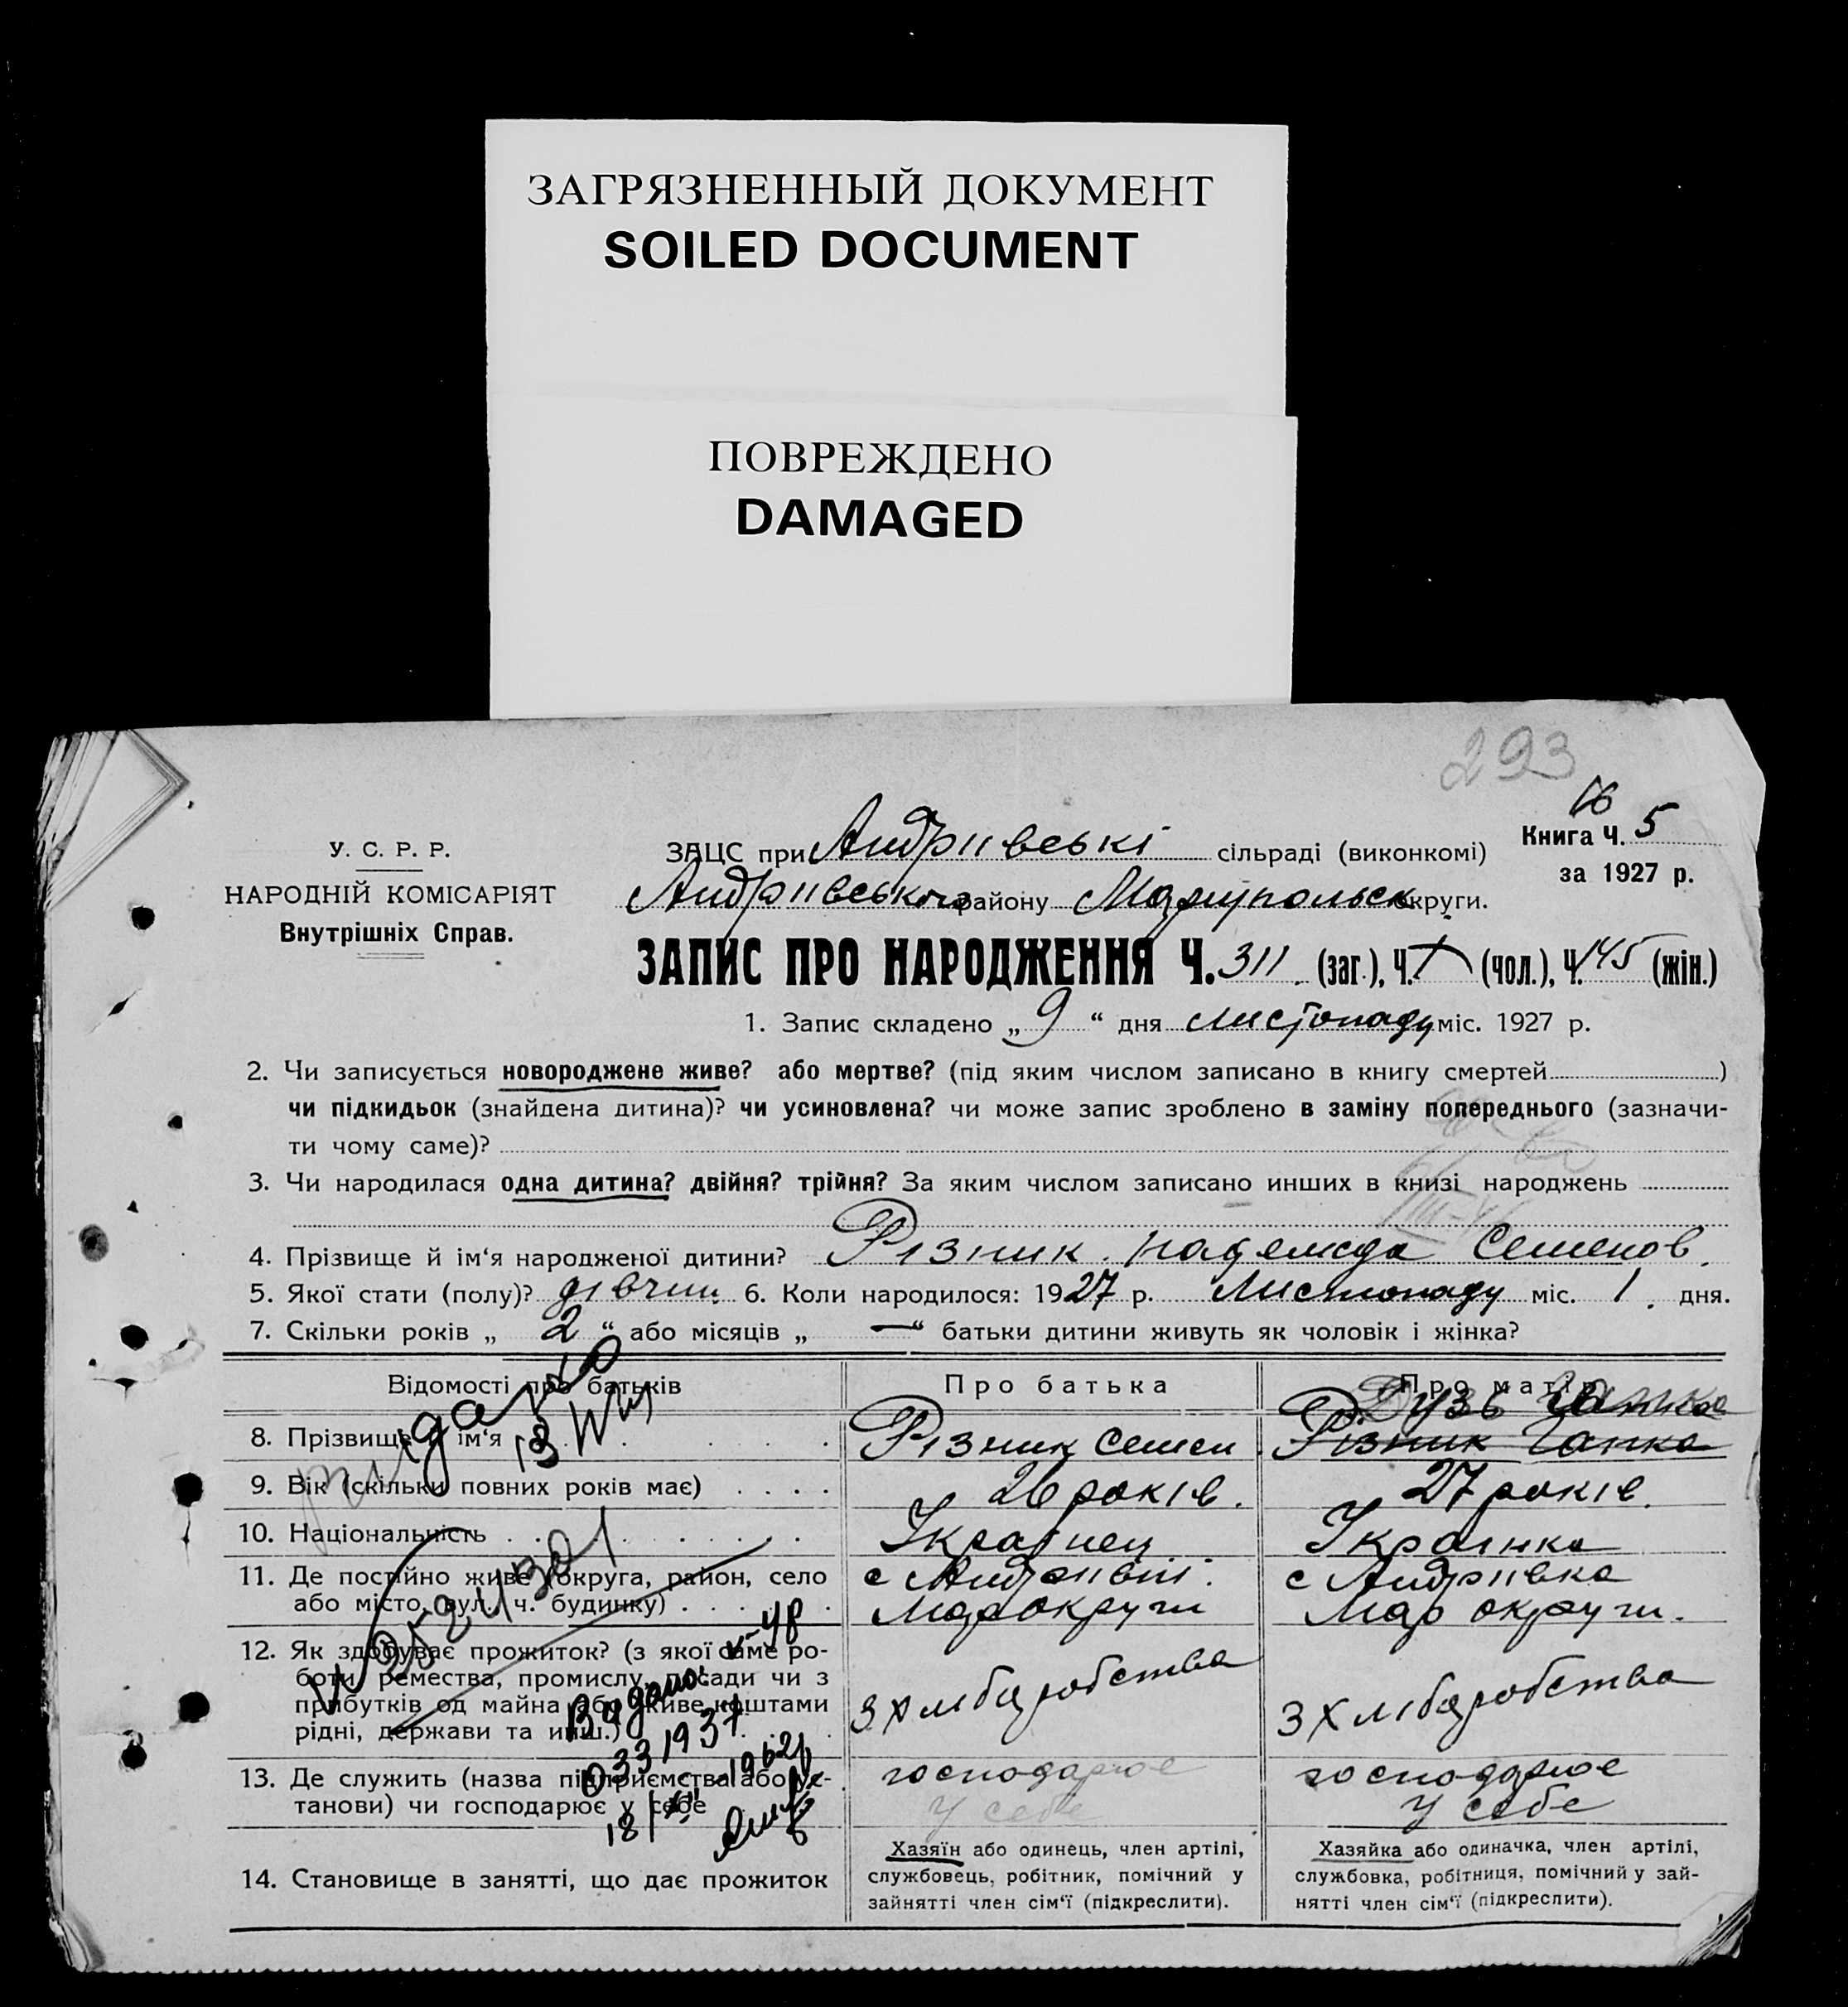 ЗАГРЯЗНЕННЫЙ ДОКУМЕНТ
SOILED DOCUMENT
ПОВРЕЖДЕНО
DAMAGED
293
16
У. С. Р. Р.
НАРОДНІЙ КОМІСАРІЯТ
Внутрішніх Справ.
ЗАЦС при Андриівські сільраді (виконкомі)
Книга Ч. 5
за 1927 р.
Андриівського району Маріупольськ округи.
ЗАПИС ПРО НАРОДЖЕННЯ Ч. 311 (заг.), Ч. (чол.), Ч. 145 (жін.)
1. Запис складено „ 9 “ дня листопаду міс. 1927 р.
2. Чи записується новороджене живе? або мертве? (під яким числом записано в книгу смертей )
чи підкидьок (знайдена дитина)? чи усиновлена? чи може запис зроблено в заміну попереднього (зазначи-
ти чому саме)?
3. Чи народилася одна дитина? двійня? трійня? За яким числом записано инших в книзі народжень
4. Прізвище й ім‘я народженої дитини? Різник Надежда Семенов.
5. Якої стати (полу)? дівчин. 6. Коли народилося: 1927 р. Листопаду міс. 1. дня.
7. Скільки років „ 2 “ або місяців „ — “ батьки дитини живуть як чоловік і жінка?
Відомості про батьків
Про батька
Про матір
Дузь Ганка
8. Прізвище й ім‘я
Різник Семен
Різник Ганка
9. Вік (скільки повних років має)
26 років.
27 років.
10. Національність
Украінец
Украінка
11. Де постійно живе (округа, район, село
або місто, вул., ч. будинку)
с Андріівці.
Мар округи
с Андріівка
Мар округи.
12. Як здобуває прожиток? (з якої саме ро-
боти, ремества, промислу, посади чи з
прибутків од майна або живе коштами
рідні, держави та инш.)
З хлібаробства
З хлібаробства
13. Де служить (назва підприємства або ус-
танови) чи господарює у себе
господарює
у себе
господарює
у себе
14. Становище в занятті, що дає прожиток
Хазяїн або одинець, член артілі,
службовець, робітник, помічний у
зайнятті член сім‘ї (підкреслити).
Хазяйка або одиначка, член артілі,
службовка, робітниця, помічний у зай-
нятті член сім‘ї (підкреслити).
Видано
0331937
1962